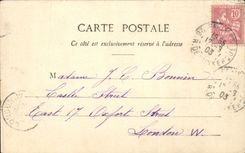 CARTE POSTALE
Ce côté est exclusivement réservé à l'adresse
Madame J. C. Bonnin
Castle Street
East 17 Oxford Street
London W.